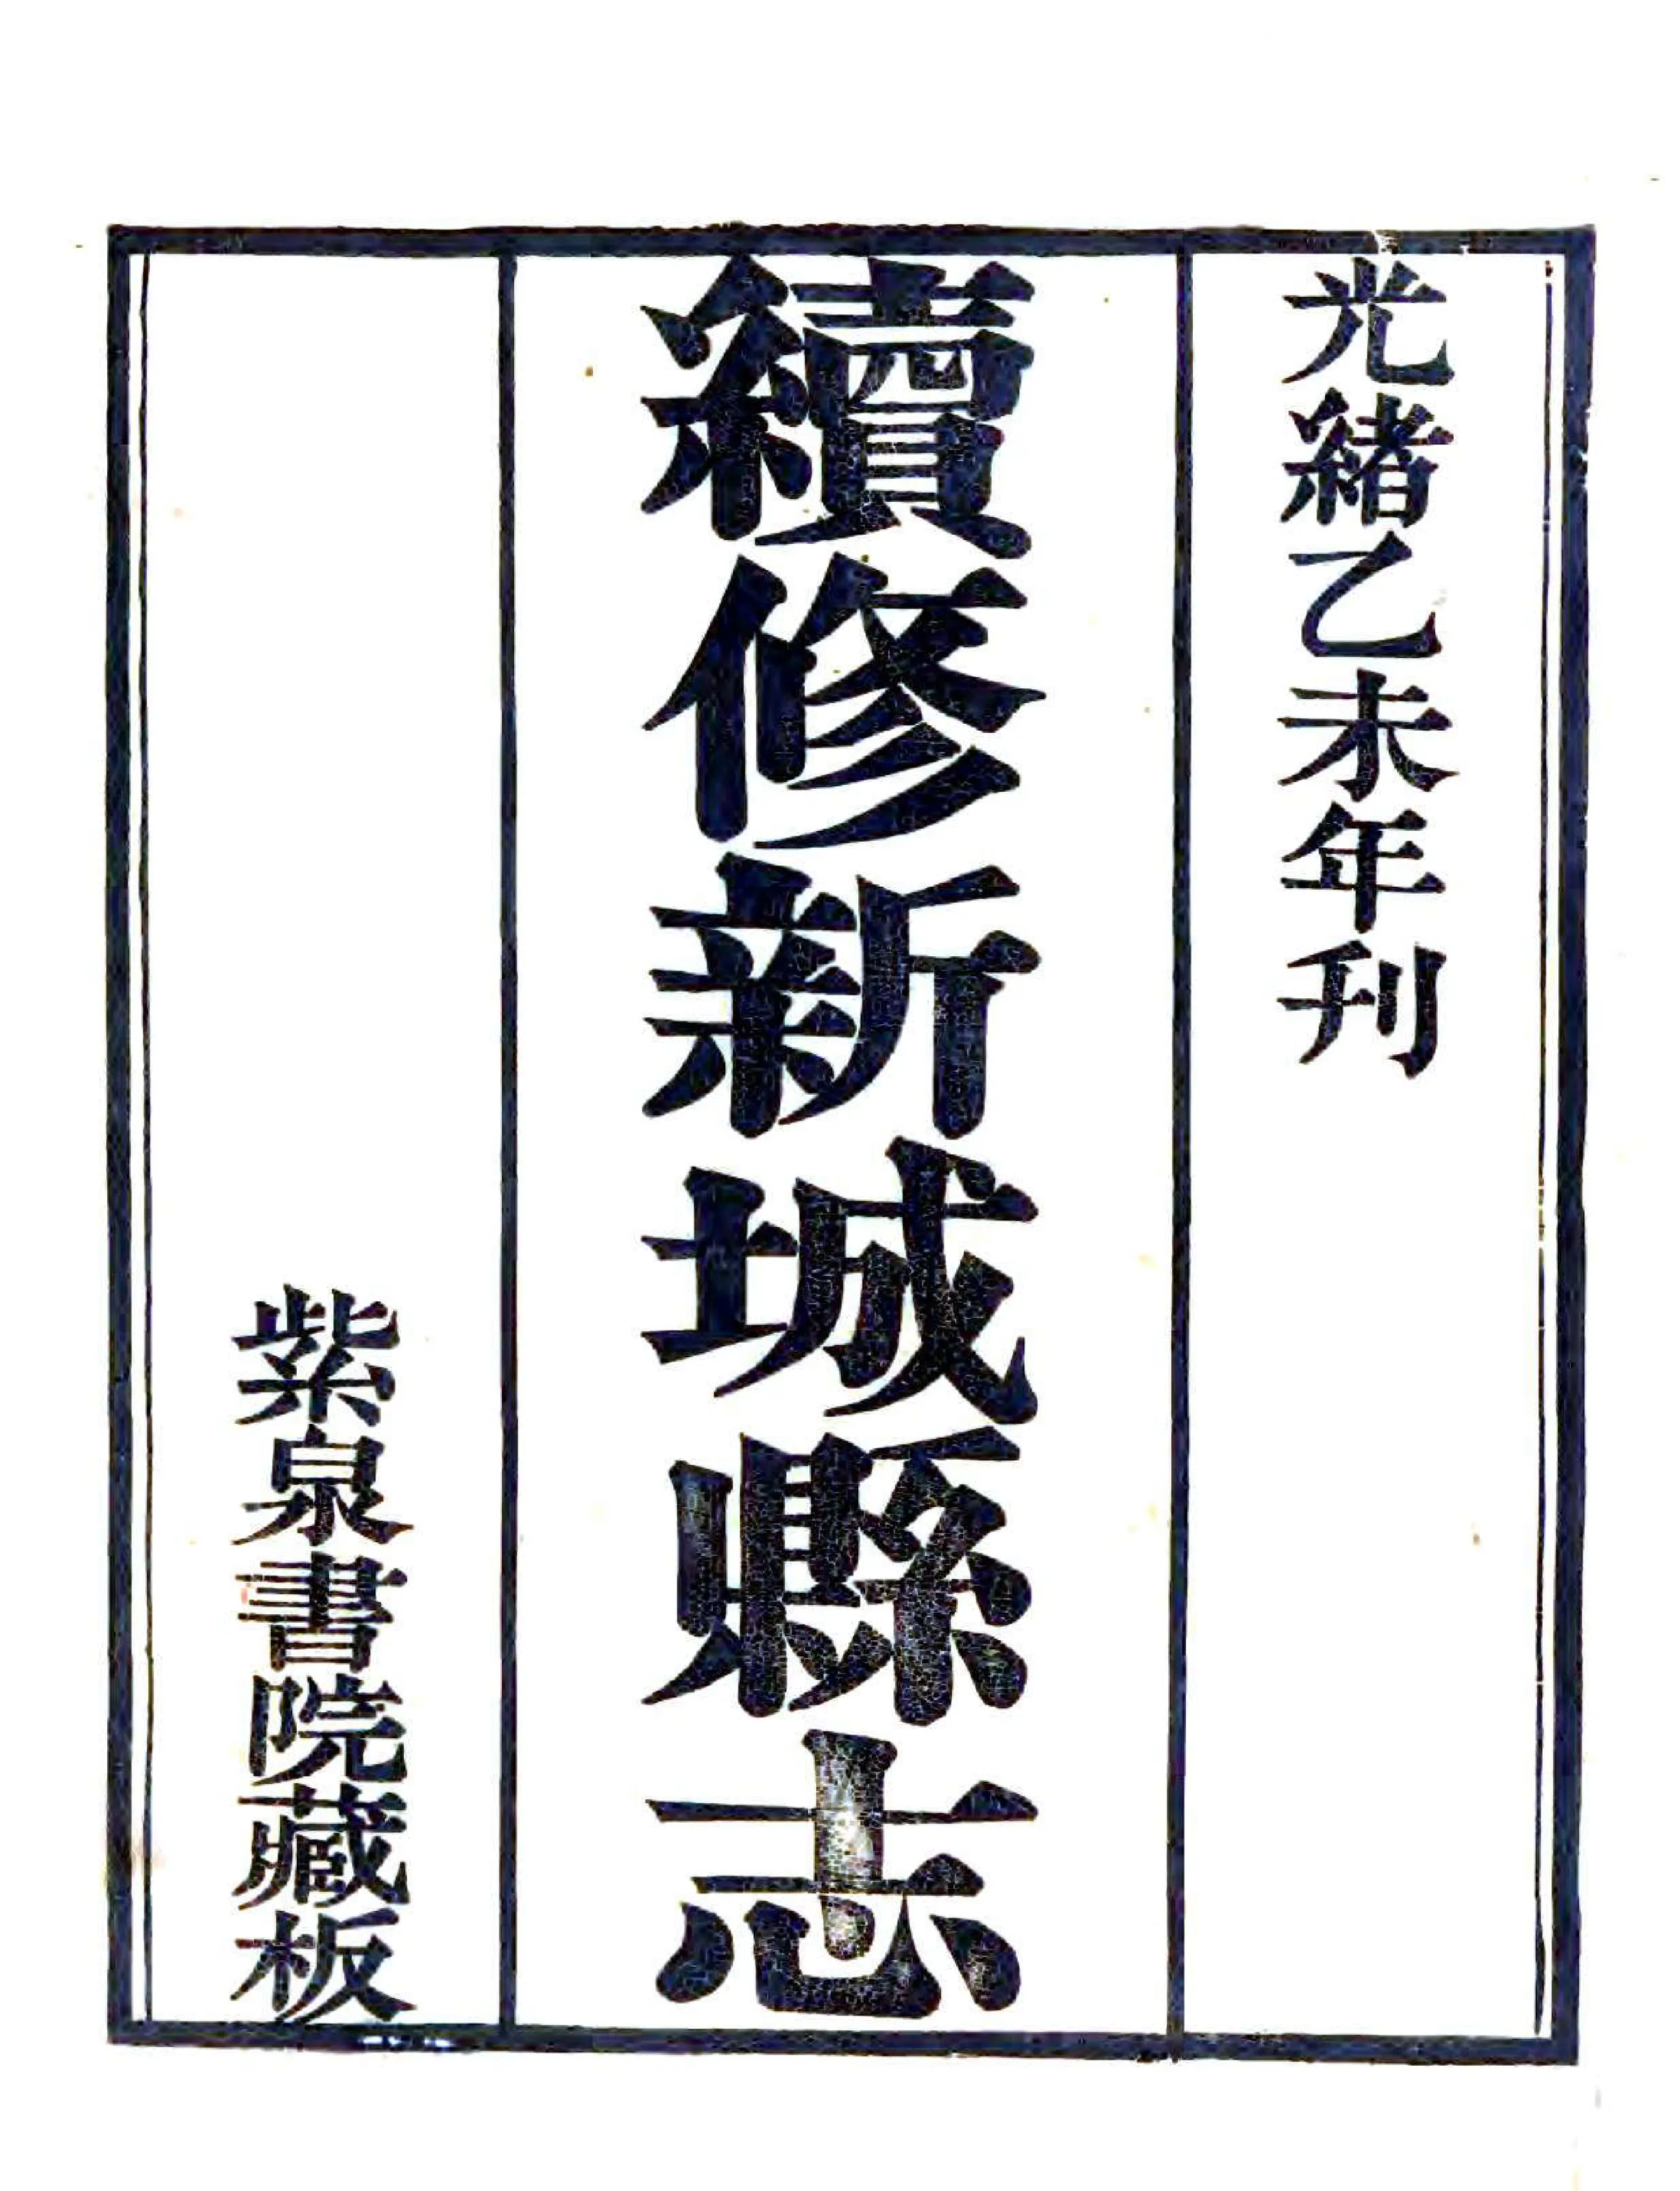 光緒乙未年刊
續修新城縣志
紫泉書院藏板